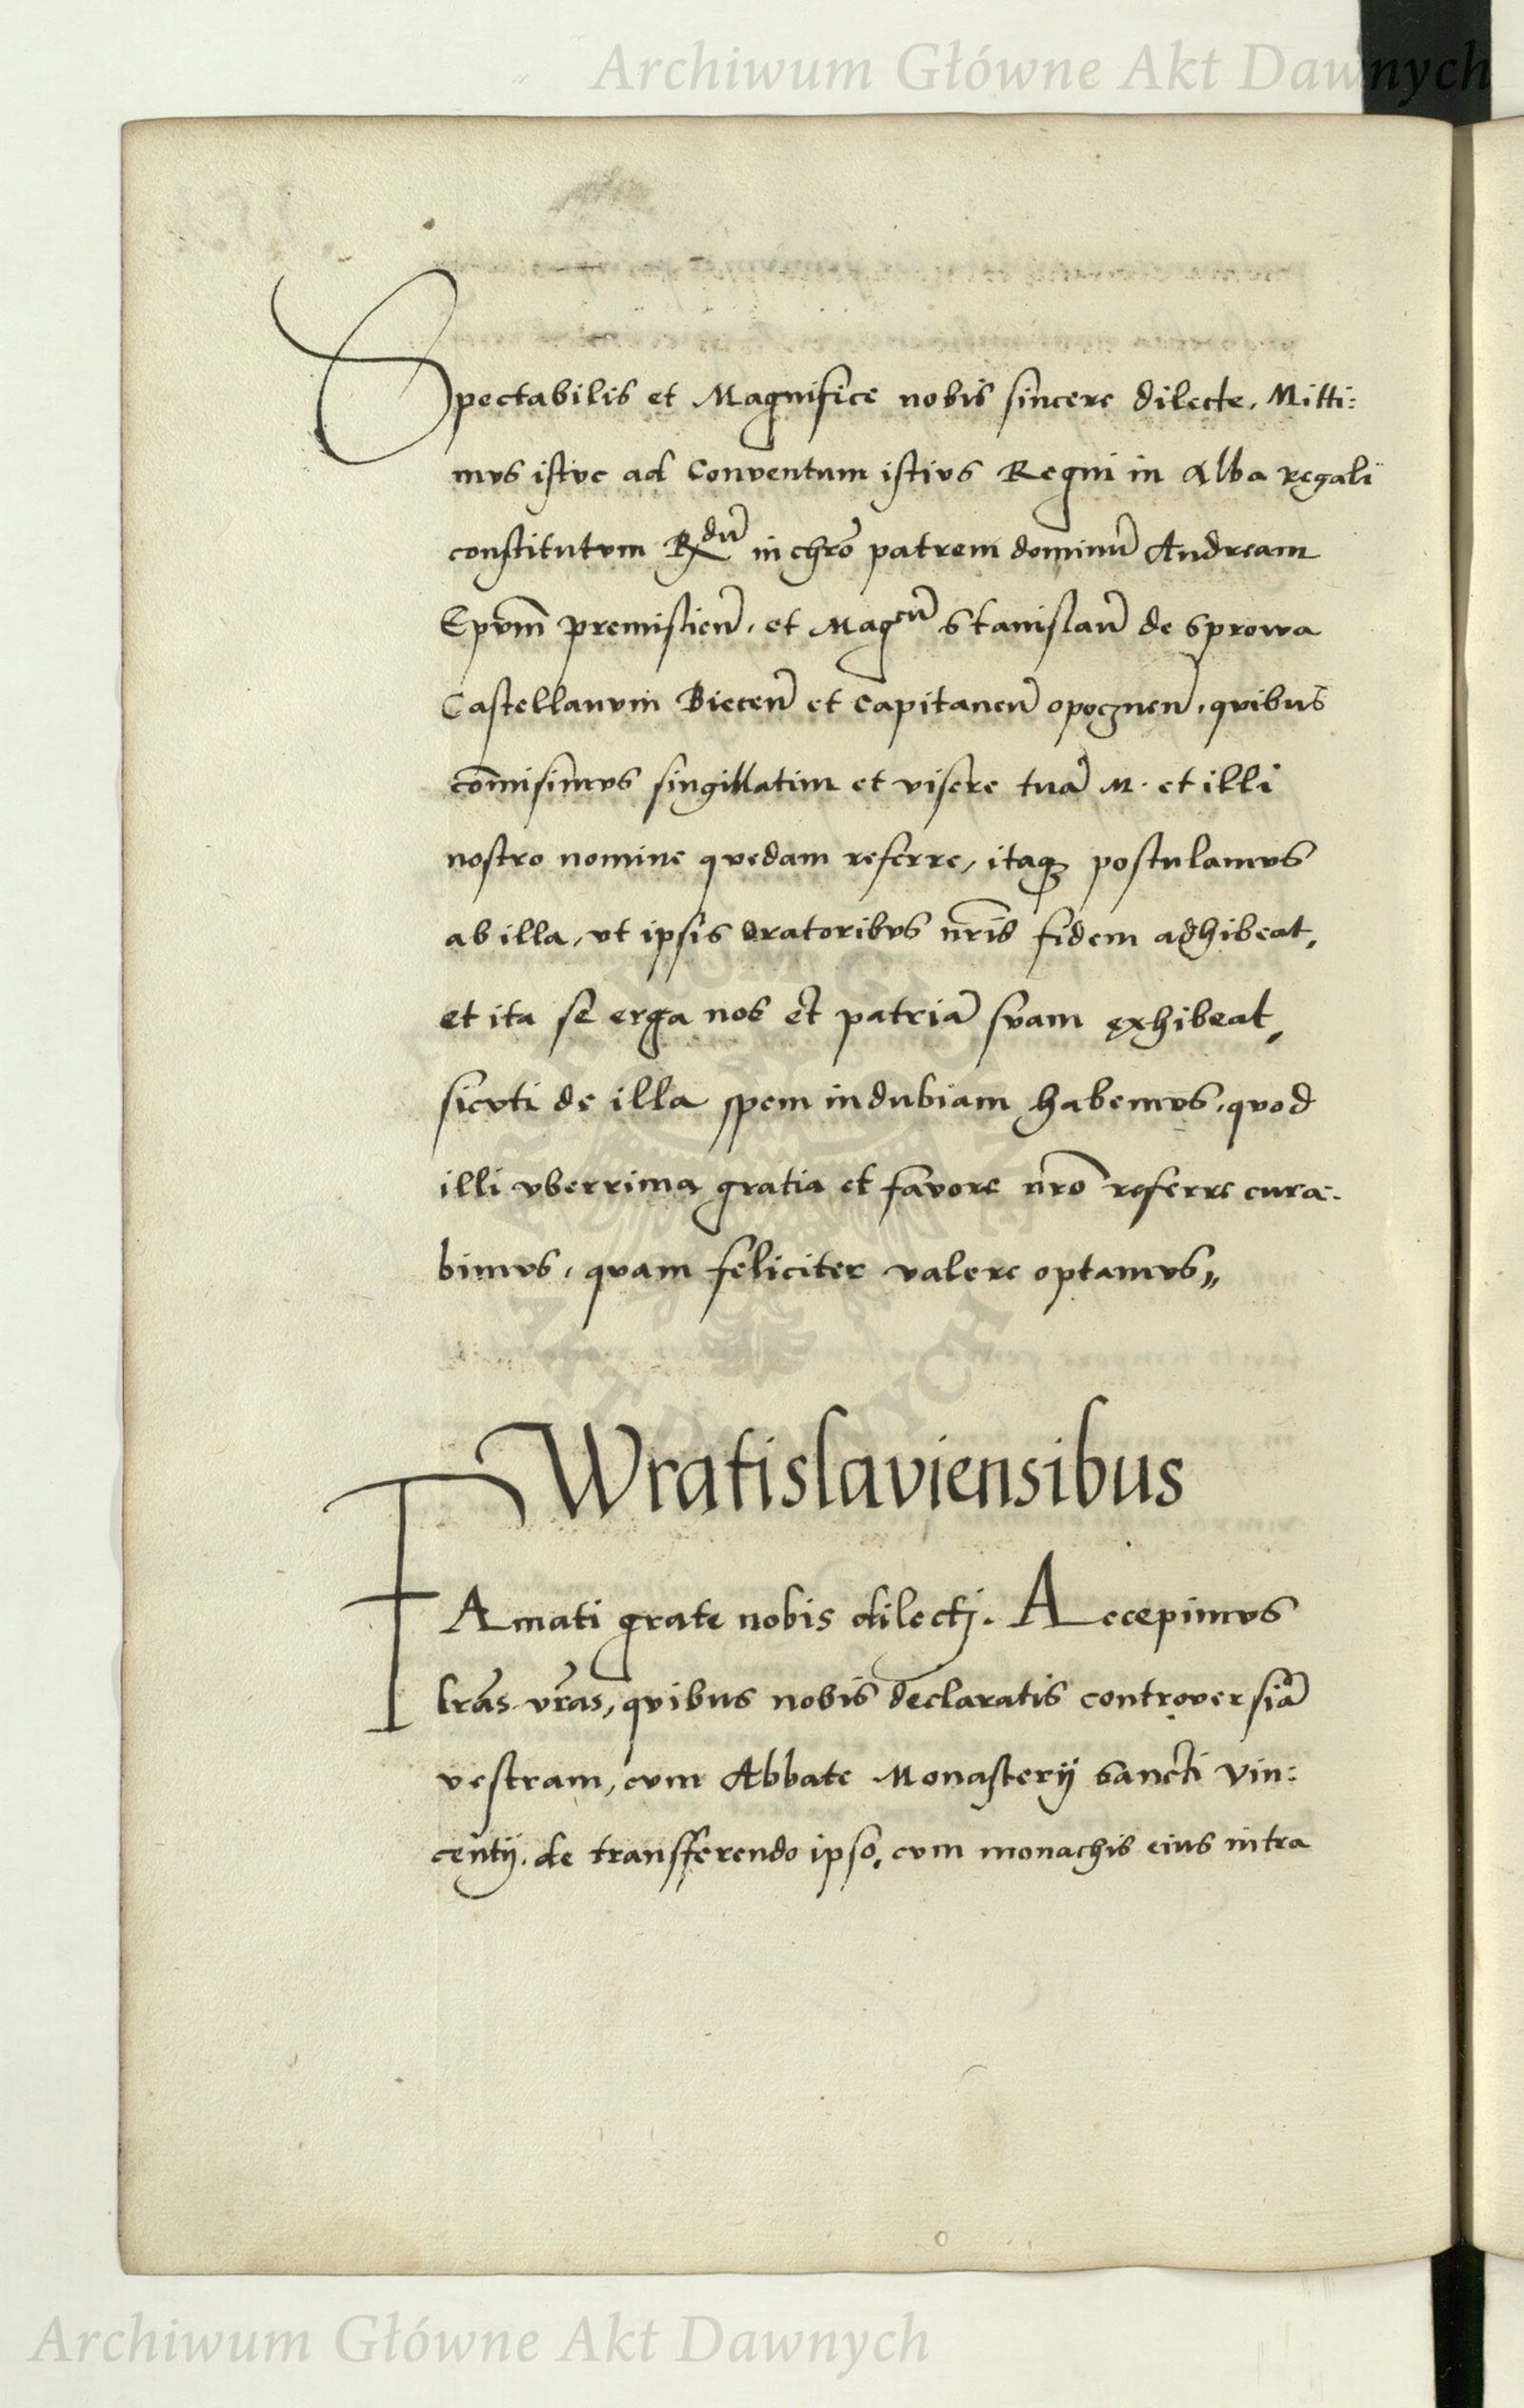 Archiwum Główne Akt Dawnych
Spectabilis et Magnifice nobis sincere dilecte, Mitti:
mus istuc ad Conventum istius Regni in Alba regali
constitutum R^dũ in chrõ patrem dominũ Andream
Epvm̃ premislieñ, et Mag^cũ Stanislaũ de Sprowa
Castellanum Bieceñ et Capitaneũ opoczneñ, quibus
com̃isimus singillatim et visere tuã M. et illi
nostro nomine quedam referre, itaqȝ postulamus
ab illa, ut ipsis oratoribus nr̃is fidem adhibeat,
et ita se erga nos et patriã suam exhibeat,
sicuti de illa spem indubiam habemus, quod
illi uberrima gratia et favore nr̃o referre cura-
bimus, quam feliciter valere optamus,,
Wratislaviensibus
FAmati grate nobis dilectj. Accepimus
lr̃as vr̃as, quibus nobis declaratis controversiã
vestram, cum Abbate Monasterij Sancti Vin:
centij. de transfferendo ipso, cum monachis eius intra
ARCHIWUM GŁÓWNE
AKT DAWNYCH
Archiwum Główne Akt Dawnych